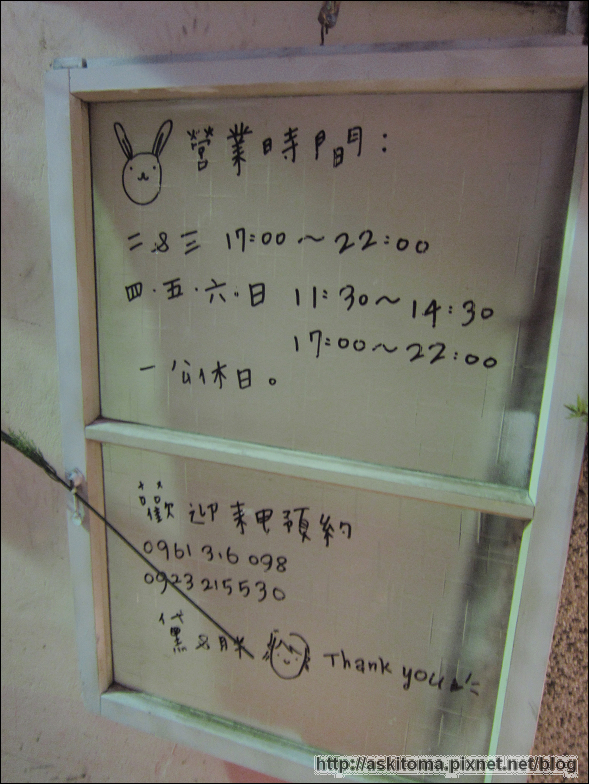 營業時間:
二&三 17:00~22:00
四.五.六.日 11:30~14:30
17:00~22:00
一公休日。
歡迎來電預約
0961 316 098
0923215530
黛&胖 Thank you
http://askitoma.pixnet.net/blog